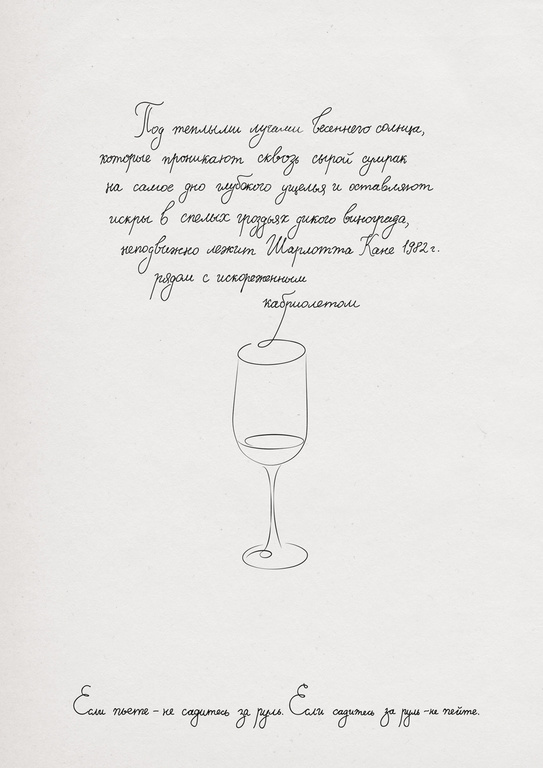 Под теплыми лучами весеннего солнца,
которые проникают сквозь сырой сумрак
на самое дно глубокого ущелья и оставляют
искры в спелых гроздьях дикого винограда,
неподвижно лежит Шарлотта Кане 1982 г.
рядом с искореженным
кабриолетом
Если пьете - не садитесь за руль. Если садитесь за руль - не пейте.